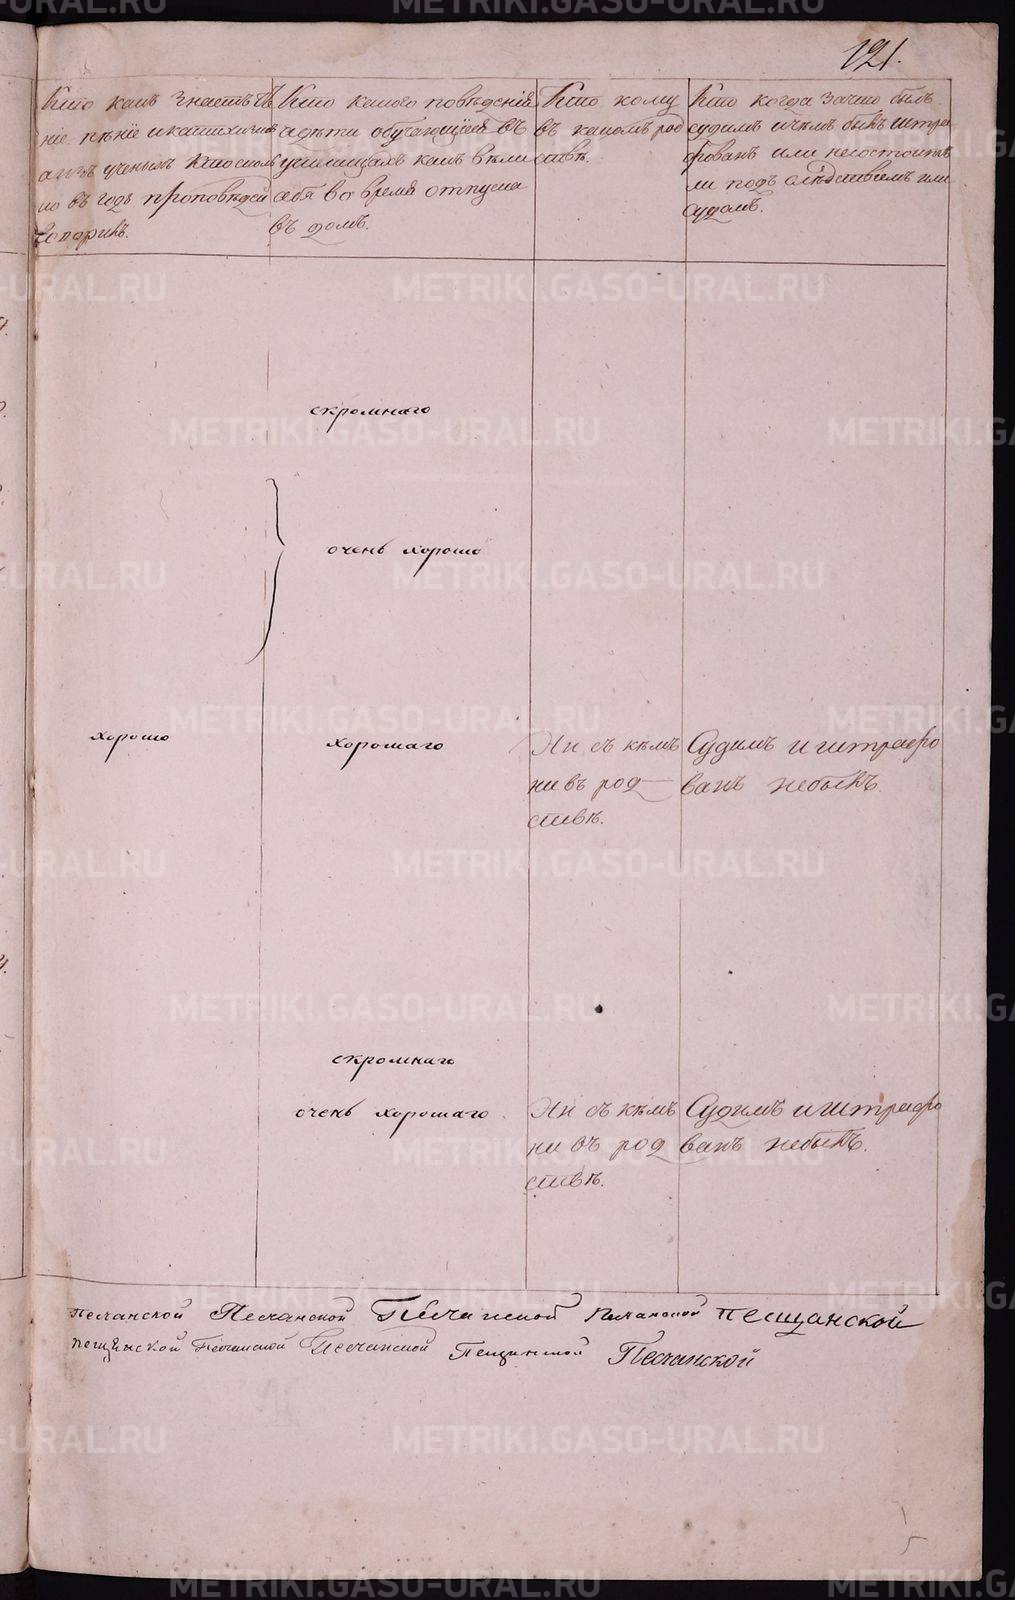 121.
Кто какъ знаетъ чте
ніе пѣніе и катихизисъ
а изъ ученыхъ кто сколь
ко въ годъ проповѣдей
говоритъ.
Кто какого поведенія
а дѣти обучающіеся въ
училищахъ какъ вели
себя во время отпуска
въ домъ.
Кто кому
въ какомъ род
ствѣ.
Кто когда за что былъ
судимъ и чѣмъ былъ штра
фованъ или не состоитъ
ли подъ слѣдствіемъ или
судомъ.
скромнаго
очень хорошо
хорошо
хорошаго
Ни съ кѣмъ
ни въ род
ствѣ.
Судимъ и штрафо
ванъ небылъ.
скромнаго
очень хорошаго
Ни съ кѣмъ
ни въ род
ствѣ.
Судимъ и штрафо
ванъ небылъ.
Песчанской Песчанской Песчанской Песчанской Пещанской
Пещанской Песчанской Песчанской Пещанской Песчанской
METRIKI.GASO-URAL.RU